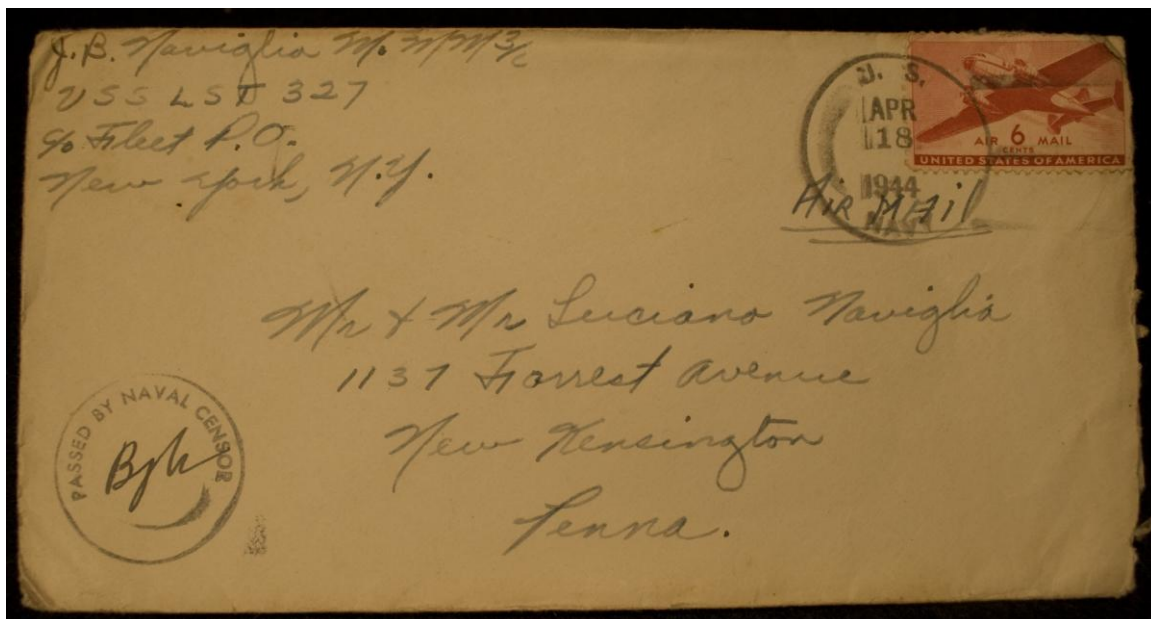 J.B. Naviglia M. MM 3/c
USS LST 327
c/o Fleet P.O.
New York, N.Y.
U. S.
APR
18
1944
NAVY
AIR 6 MAIL
CENTS
UNITED STATES OF AMERICA
Air Mail
Mr & Mr Luciano Naviglia
1137 Forrest Avenue
New Kensington
Penna.
PASSED BY NAVAL CENSOR